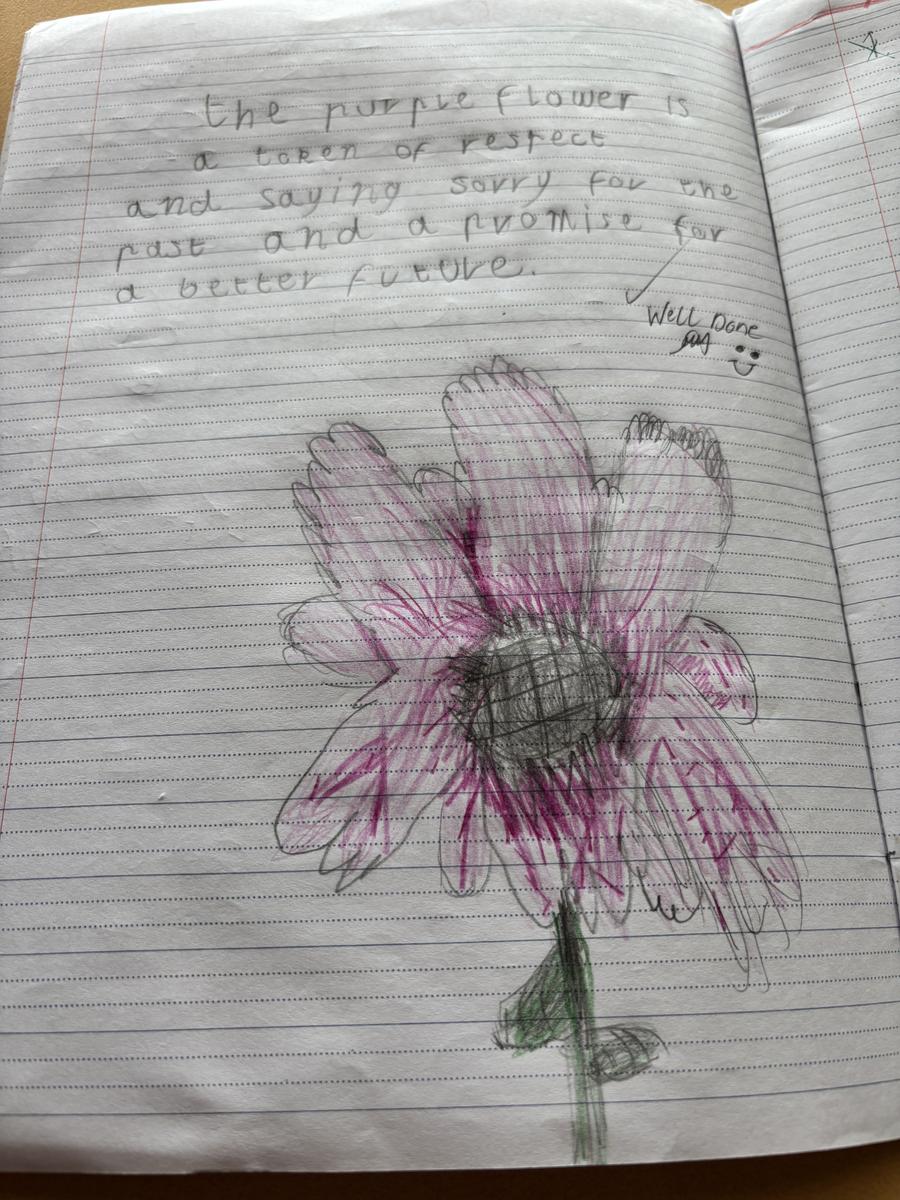 the purple flower is
a token of respect
and saying sorry for the
past and a promise for
a better future.
Well Done